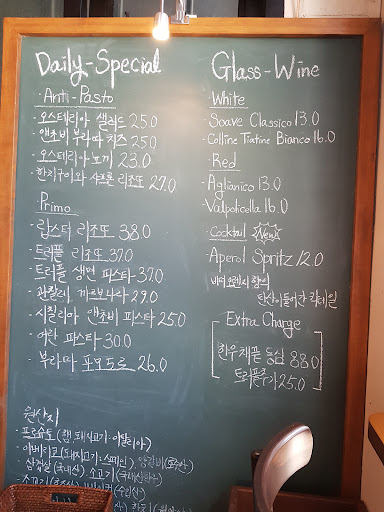 Daily-Special
·Anti-Pasto
- 오스테리아 샐러드 25.0
- 앤초비 부라따 치즈 25.0
- 오스테리아 뇨끼 23.0
- 한치구이와 사프론 리조또 27.0
·Primo
- 랍스터 리조또 38.0
- 트러플 리조또 37.0
- 트러플 생면 파스타 37.0
- 관찰레 까르보나라 29.0
- 시칠리아 앤초비 파스타 25.0
- 어란 파스타 30.0
- 부라따 포모도로 26.0
원산지
- 프로슈토 (햄 돼지고기: 이탈리아)
- 이베리코 (돼지고기: 스페인), 양갈비 (호주산)
삼겹살 (국내산), 소고기 (국내산한우)
Glass-Wine
·White
- Soave Classico 13.0
- Colline Tiatine Bianco 16.0
·Red
- Aglianico 13.0
- Valpolicella 16.0
·Cocktail New
Aperol Spritz 12.0
비터 오렌지 향의
탄산이 들어간 칵테일
Extra Charge
한우 채끝 등심 88.0
트러플추가 25.0